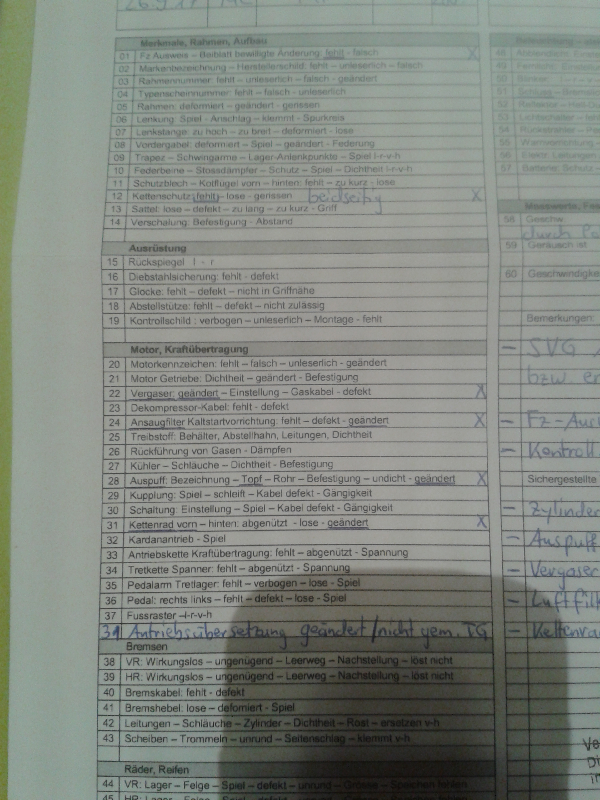 26.9.17
Merkmale, Rahmen, Aufbau
01 Fz Ausweis – Beiblatt bewilligte Änderung: fehlt - falsch X
02 Markenbezeichnung – Herstellerschild: fehlt – unleserlich – falsch
03 Rahmennummer: fehlt – unleserlich – falsch - geändert
04 Typenscheinnummer: fehlt – falsch - unleserlich
05 Rahmen: deformiert – geändert - gerissen
06 Lenkung: Spiel - Anschlag – klemmt - Spurkreis
07 Lenkstange: zu hoch – zu breit – deformiert - lose
08 Vordergabel: deformiert – Spiel – geändert - Federung
09 Trapez – Schwingarme – Lager-Anlenkpunkte – Spiel l-r-v-h
10 Federbeine – Stossdämpfer – Schutz – Spiel – Dichtheit l-r-v-h
11 Schutzblech – Kotflügel vorn – hinten: fehlt – zu kurz - lose
12 Kettenschutz: fehlt – lose - gerissen beidseitig X
13 Sattel: lose – defekt – zu lang – zu kurz - Griff
14 Verschalung: Befestigung - Abstand
Ausrüstung
15 Rückspiegel l - r
16 Diebstahlsicherung: fehlt - defekt
17 Glocke: fehlt – defekt – nicht in Griffnähe
18 Abstellstütze: fehlt – defekt – nicht zulässig
19 Kontrollschild : verbogen – unleserlich – Montage - fehlt
Motor, Kraftübertragung
20 Motorkennzeichen: fehlt – falsch – unleserlich - geändert
21 Motor Getriebe: Dichtheit – geändert - Befestigung
22 Vergaser: geändert – Einstellung – Gaskabel - defekt X
23 Dekompressor-Kabel: fehlt - defekt
24 Ansaugfilter Kaltstartvorrichtung: fehlt – defekt - geändert X
25 Treibstoff: Behälter, Abstellhahn, Leitungen, Dichtheit
26 Rückführung von Gasen - Dämpfen
27 Kühler – Schläuche – Dichtheit - Befestigung
28 Auspuff: Bezeichnung – Topf – Rohr – Befestigung - undicht - geändert X
29 Kupplung: Spiel – schleift – Kabel defekt - Gängigkeit
30 Schaltung: Einstellung – Spiel – Kabel defekt - Gängigkeit
31 Kettenrad vorn – hinten: abgenützt - lose - geändert X
32 Kardanantrieb - Spiel
33 Antriebskette Kraftübertragung: fehlt – abgenützt - Spannung
34 Tretkette Spanner: fehlt – abgenützt - Spannung
35 Pedalarm Tretlager: fehlt – verbogen – lose - Spiel
36 Pedal: rechts links – fehlt – defekt – lose - Spiel
37 Fussraster –l-r-v-h
31 Antriebsübersetzung geändert/nicht gem. TG
Bremsen
38 VR: Wirkungslos – ungenügend – Leerweg – Nachstellung – löst nicht
39 HR: Wirkungslos – ungenügend – Leerweg – Nachstellung – löst nicht
40 Bremskabel: fehlt - defekt
41 Bremshebel: lose – deformiert - Spiel
42 Leitungen – Schläuche – Zylinder – Dichtheit – Rost – ersetzen v-h
43 Scheiben – Trommeln – unrund – Seitenschlag – klemmt v-h
Räder, Reifen
44 VR: Lager – Felge – Spiel – defekt – unrund – Grösse – Speichen fehlen
45 HR: Lager – Felge – Spiel – defekt
48
49
50
51 Schluss
52
53
54
55
56 Elektr. Leitungen
57 Batterie: Schutz
Messwerte
58 Geschw.
durch
59 Geräusch ist
60 Geschwindigke
Bemerkungen:
– SVG
bzw
– Fz-Aus
– Kontroll
Sichergestellte
– Zylinder
– Auspuff
– Vergaser
– Luftfil
– Kettenra